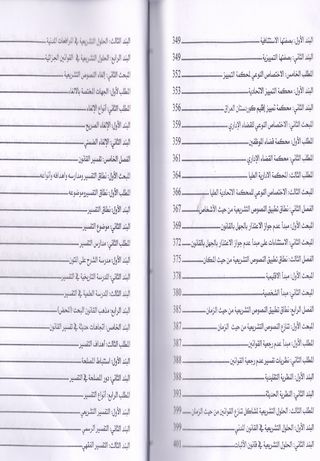 البند الأول: بصفتها الاستئنافية 349
البند الثاني: بصفتها التمييزية 349
المطلب الخامس: الاختصاص النوعي لمحكمة التمييز 352
البند الأول: محكمة التمييز الاتحادية 353
البند الثاني: محكمة تمييز إقليم كوردستان العراق 356
المبحث الثاني: الاختصاص النوعي للقضاء الإداري 359
المطلب الأول: محكمة قضاء الموظفين 359
المطلب الثاني: محكمة القضاء الإداري 361
المطلب الثالث: المحكمة الادارية العليا 364
المبحث الثالث: الاختصاص النوعي للمحكمة الاتحادية العليا 366
الفصل الثاني: نطاق تطبيق النصوص التشريعية من حيث الأشخاص 367
المبحث الأول: مبدأ عدم جواز الاعتذار بالجهل بالقانون 369
المبحث الثاني: الاستثناءات على مبدأ عدم جواز الاعتذار بالجهل بالقانون 372
الفصل الثالث: نطاق تطبيق النصوص التشريعية من حيث المكان 375
المبحث الأول: مبدأ الاقليمية 378
المبحث الثاني: مبدأ الشخصية 380
الفصل الرابع: نطاق تطبيق النصوص التشريعية من حيث الزمان 385
المبحث الأول: تنازع النصوص التشريعية من حيث الزمان 387
المطلب الأول: مبدأ عدم رجعية القوانين 387
المطلب الثاني: نظريات تفسير عدم رجعية القوانين 388
البند الأول: النظرية التقليدية 388
البند الثاني: النظرية الحديثة 393
المطلب الثالث: الحلول التشريعية لمشاكل تنازع القوانين من حيث الزمان 399
البند الأول: الحلول التشريعية في القانون المدني 399
البند الثاني: الحلول التشريعية في قانون الأثبات 401
البند الثالث: الحلول التشريعية في المرافعات المدنية
البند الرابع: الحلول التشريعية في القوانين الجزائية
المبحث الثاني: إلغاء النصوص التشريعية
المطلب الأول: الجهات المختصة بالالغاء
المطلب الثاني: أنواع الإلغاء
البند الأول: الإلغاء الصريح
البند الثاني: الإلغاء الضمني
الفصل الخامس: تفسير القانون
المبحث الأول: نطاق التفسير ومدارسه وأهدافه وأنواعه
المطلب الأول: نطاق التفسير وموضوعه
البند الأول: نطاق التفسير
البند الثاني: موضوع التفسير
المطلب الثاني: مدارس التفسير
البند الأول: مدرسة الشرح على المتون
البند الثاني: المدرسة التاريخية في التفسير
البند الثالث: المدرسة العلمية في التفسير
البند الرابع: مذهب القانون البحت (المحض)
البند الخامس: اتجاهات حديثة في تفسير القانون
المطلب الثالث: أهداف التفسير
البند الأول: استنباط المصلحة
البند الثاني: دور المصلحة في التفسير
المطلب الرابع: أنواع التفسير
البند الأول: التفسير التشريعي
البند الثاني: التفسير الرسمي
البند الثالث: التفسير الفقهي